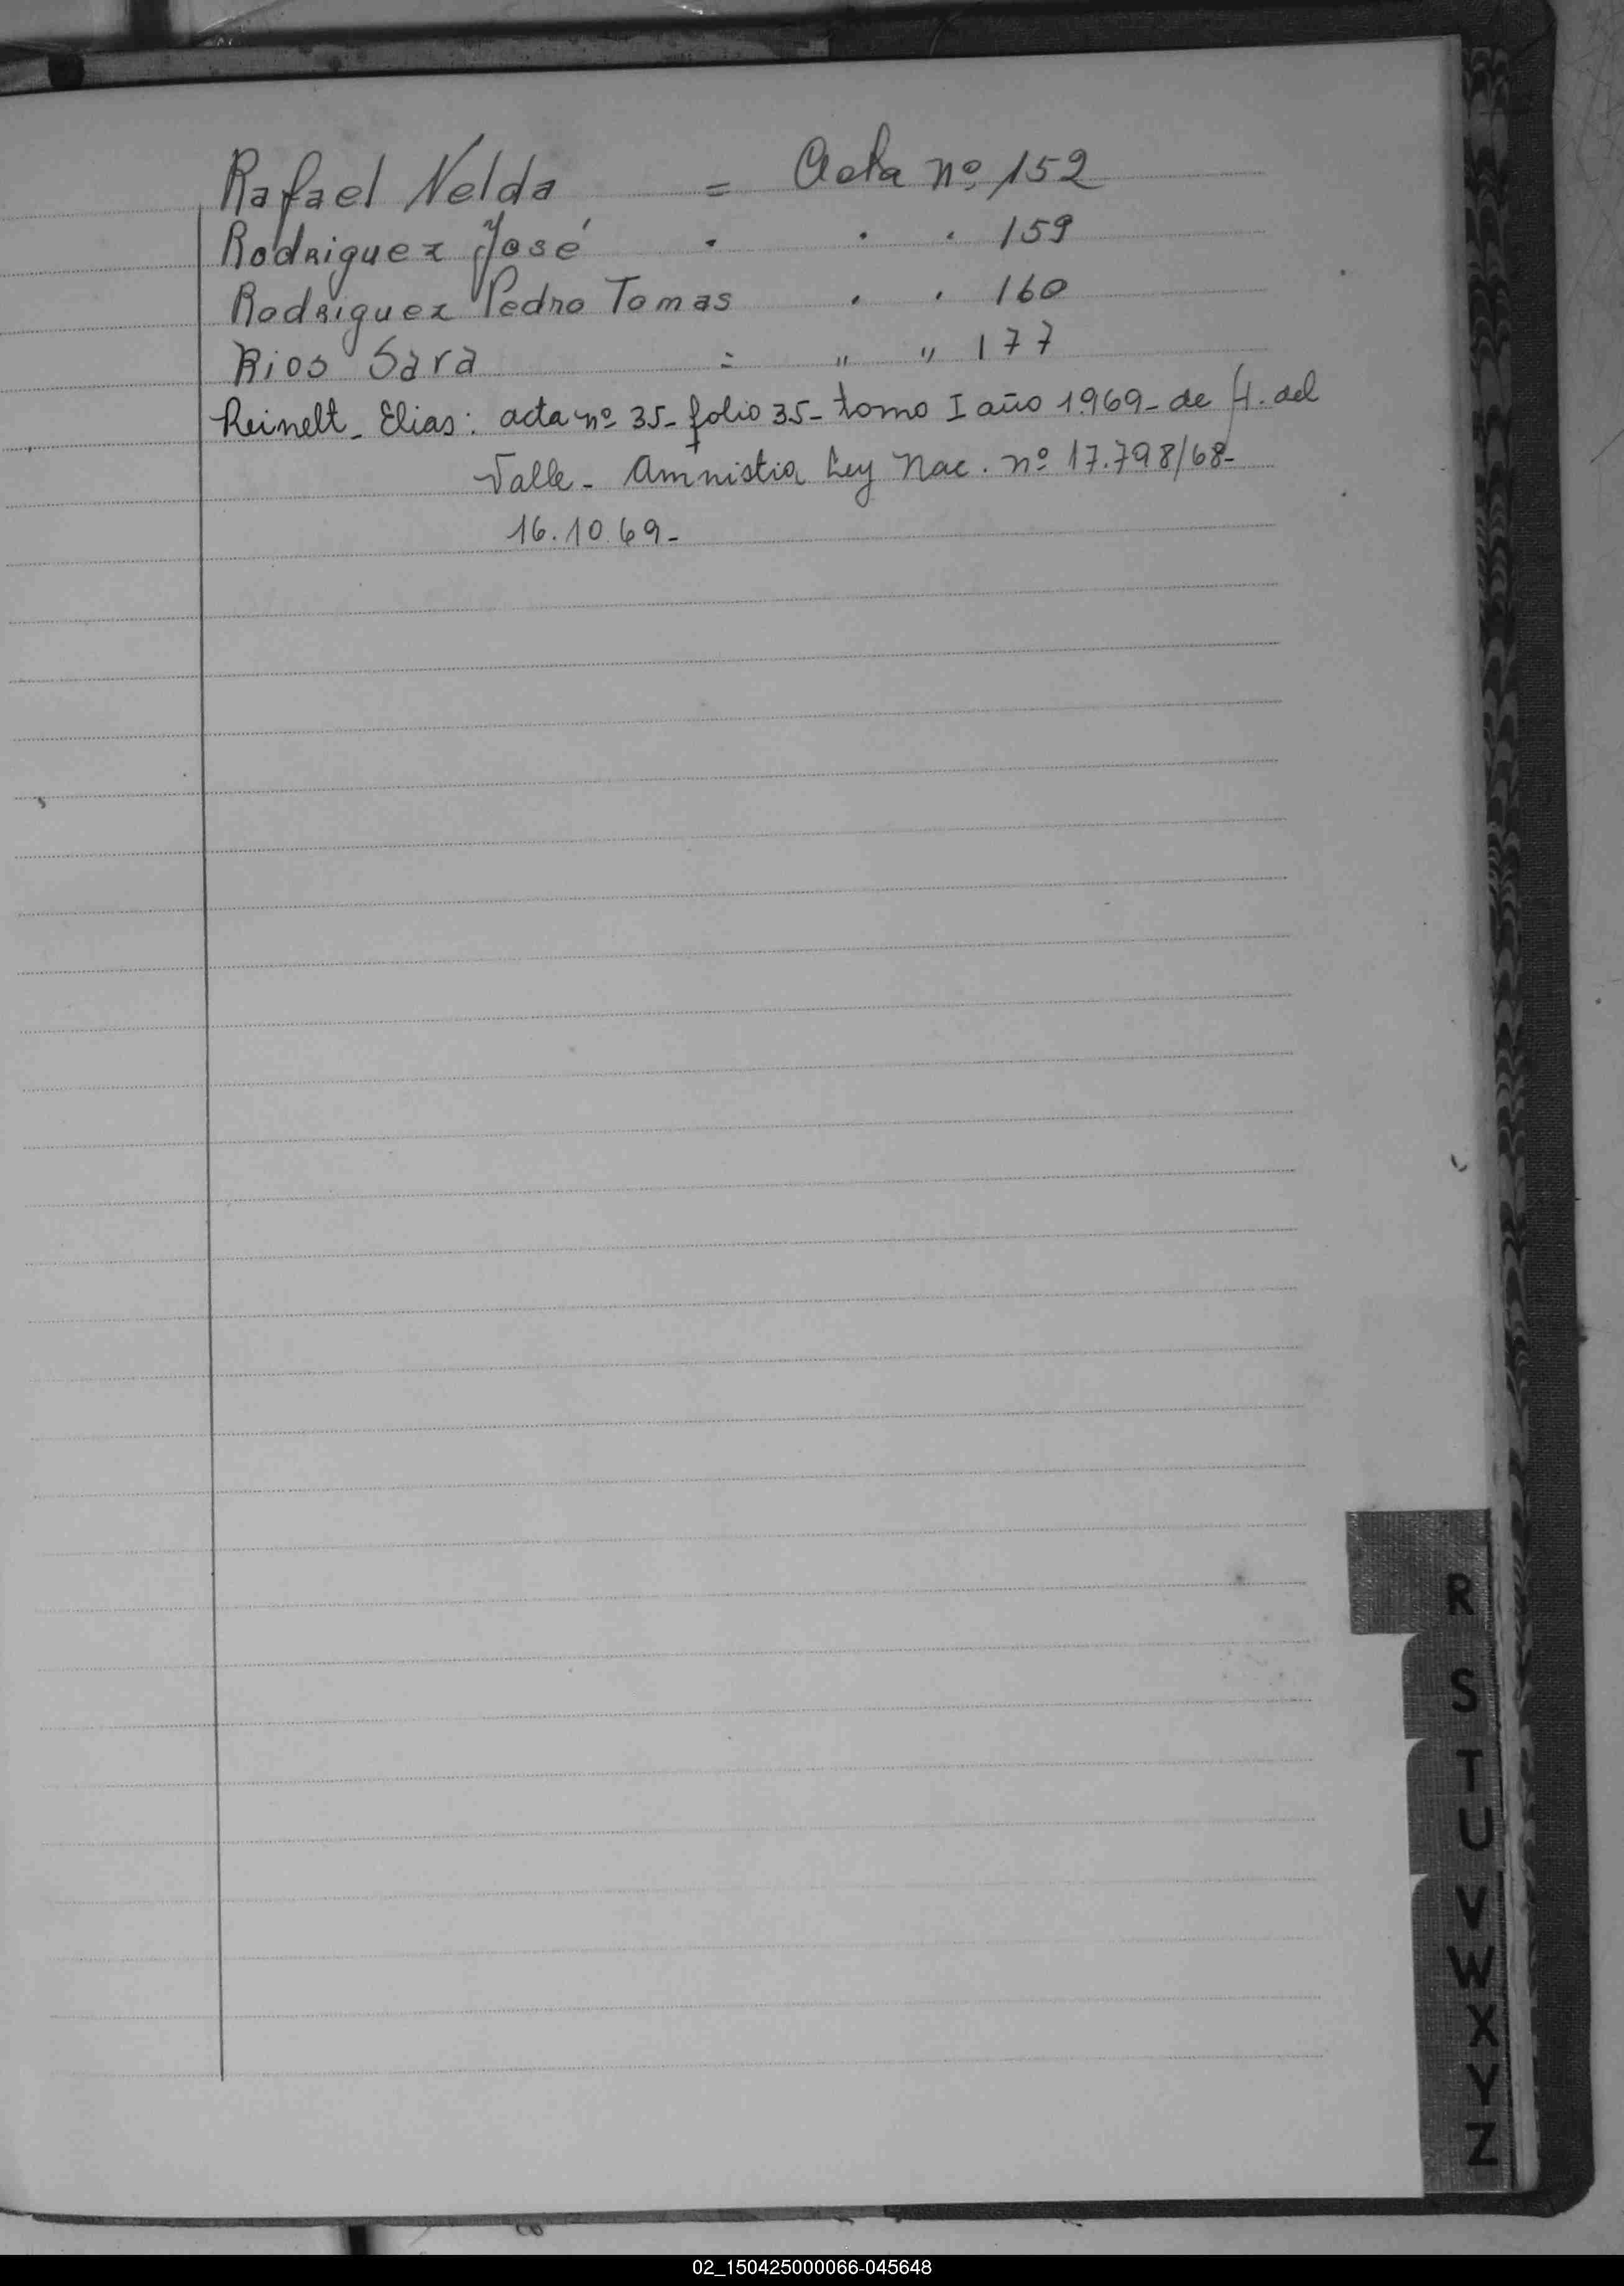 Rafael Nelda = Acta nº 152
Rodriguez José . . . 159
Rodriguez Pedro Tomas . . 160
Rios Sara = " " 177
Reinelt_ Elias: acta nº 35_ folio 35_ tomo I año 1.969_ de H. del
Valle_ Amnistia Ley Nac. nº 17.798/68_
16.10.69_
R
S
T
U
V
W
X
Y
Z
02_150425000066-045648